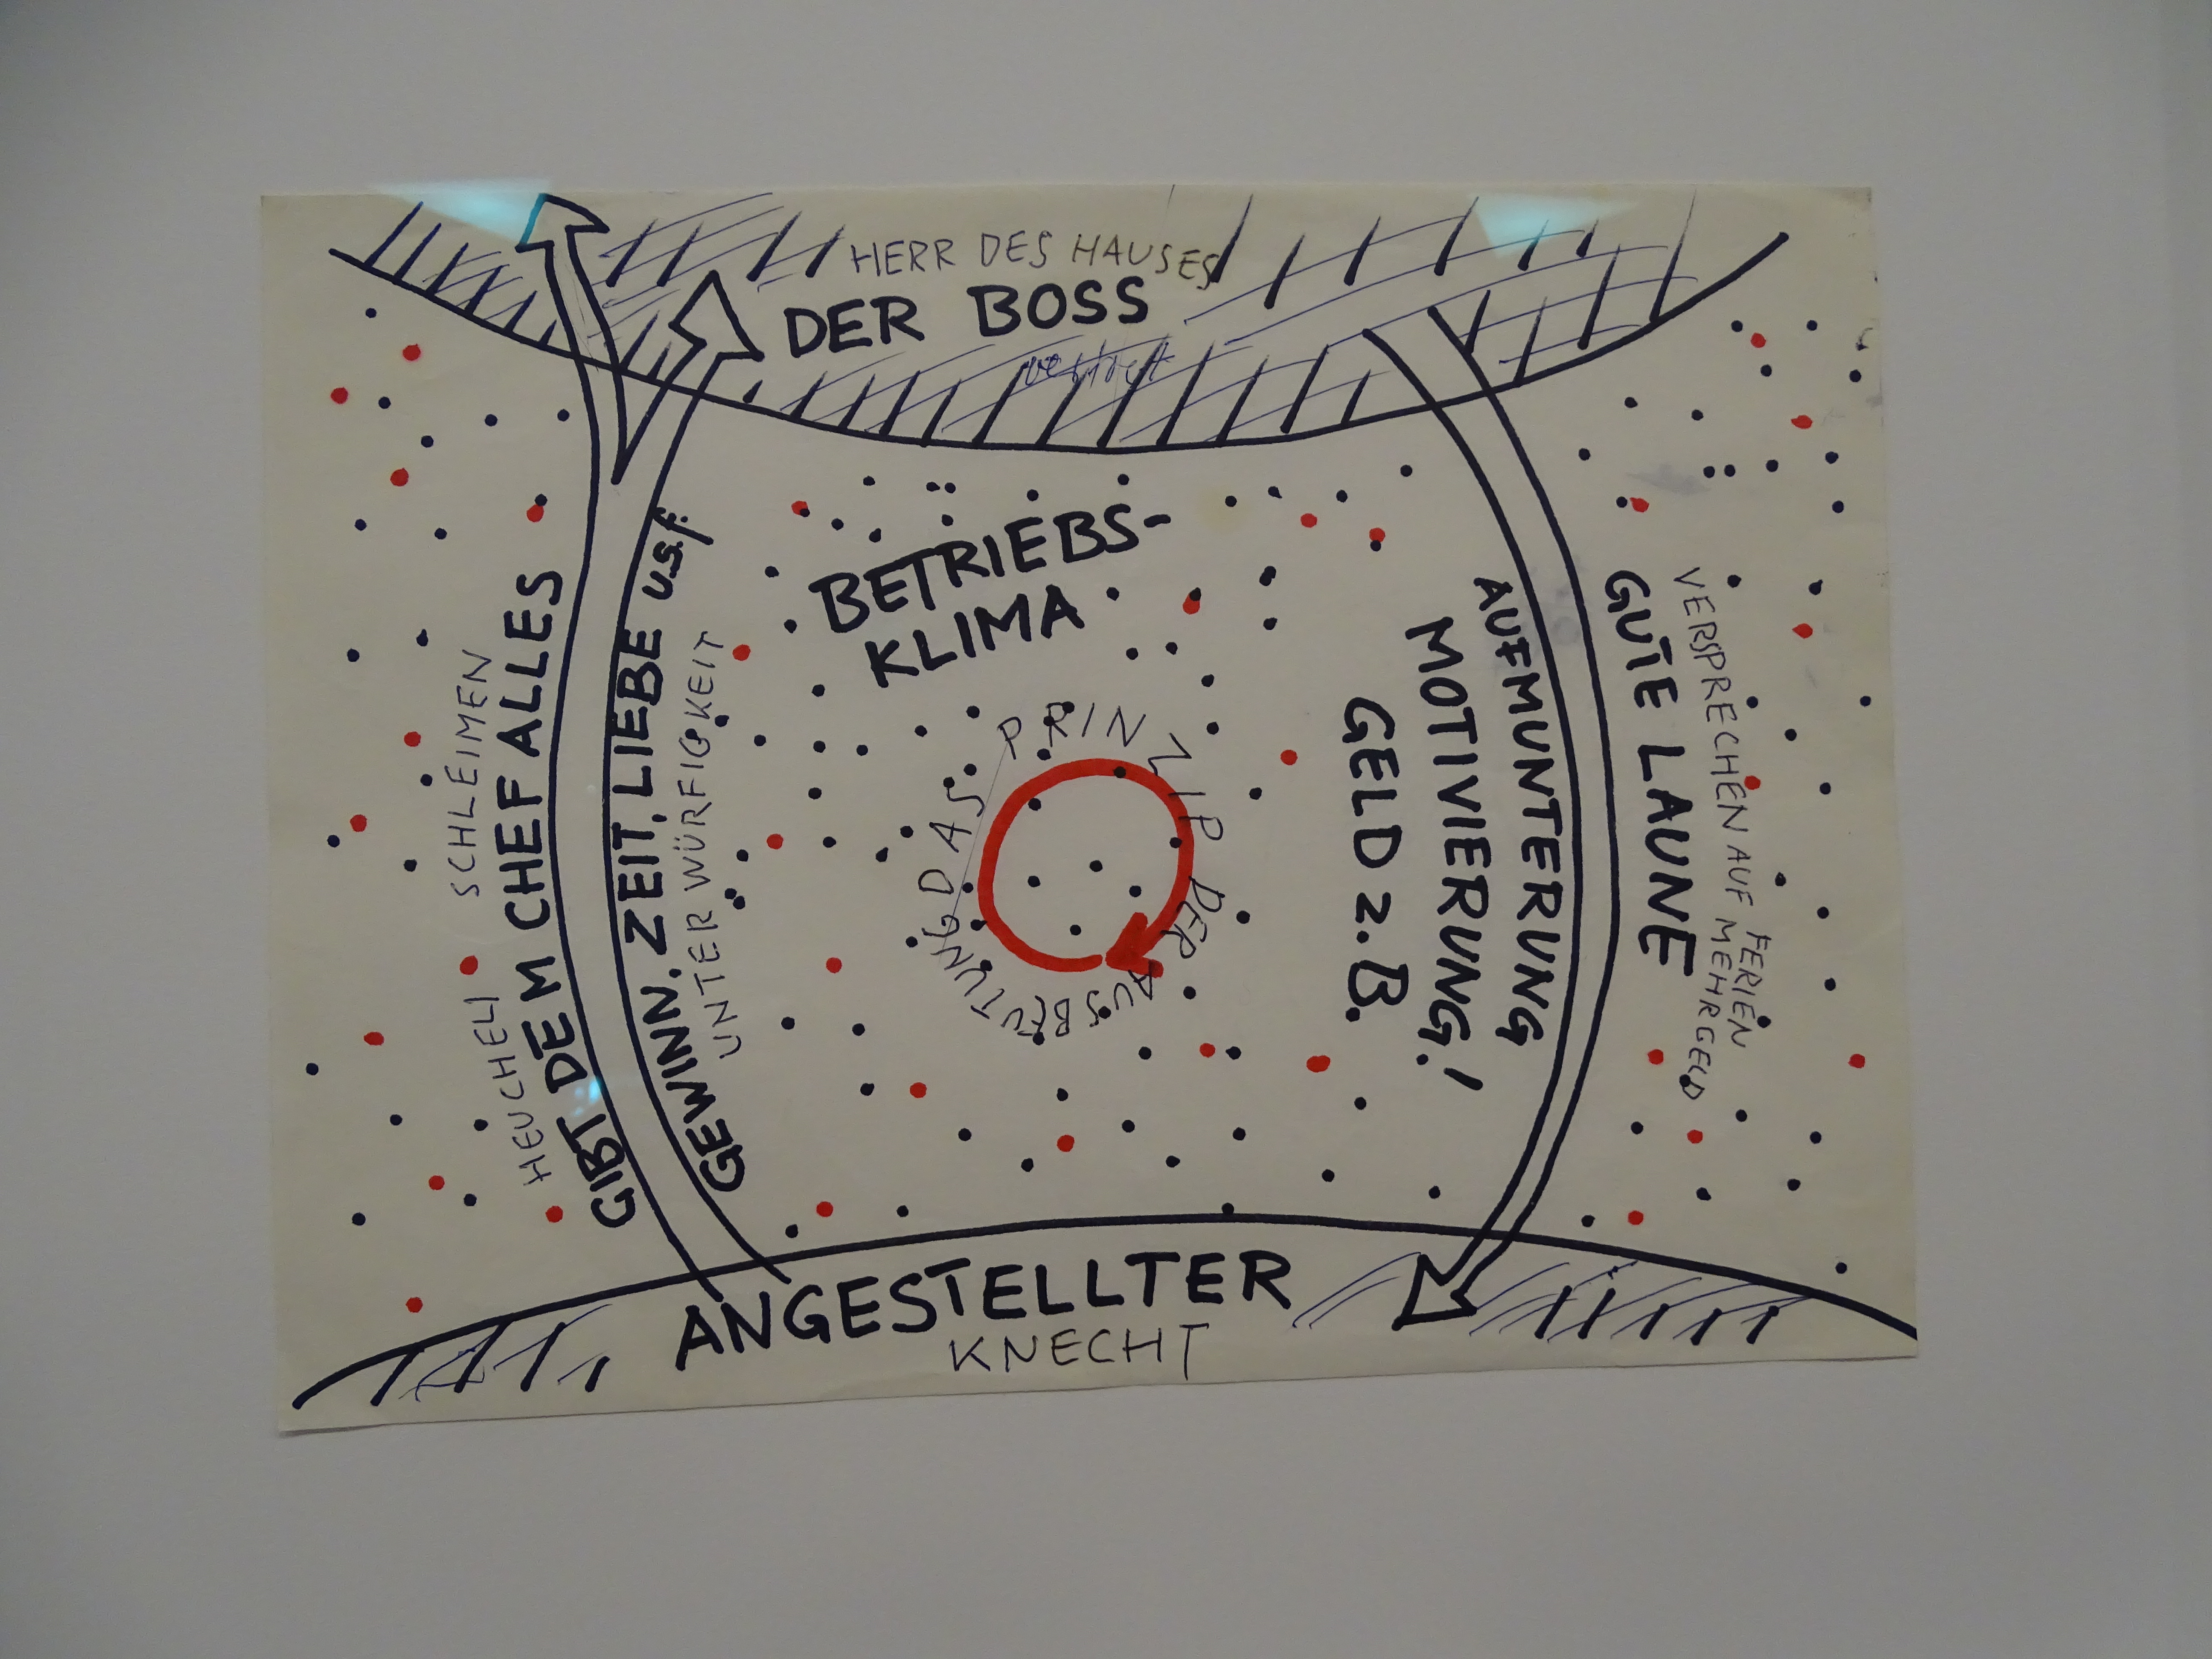 HERR DES HAUSES
DER BOSS
BETRIEBS-
KLIMA
SCHLEIMEN
HEUCHELI
GIBT DEM CHEF ALLES
GEWINN. ZEIT, LIEBE u.s.f.
UNTERWÜRFIGKEIT
DAS PRINZIP DER AUSBEUTUNG
AUFMUNTERUNG
MOTIVIERUNG!
GELD z.B.
GUTE LAUNE
VERSPRECHEN AUF FERIEN
MEHRGELD
ANGESTELLTER
KNECHT